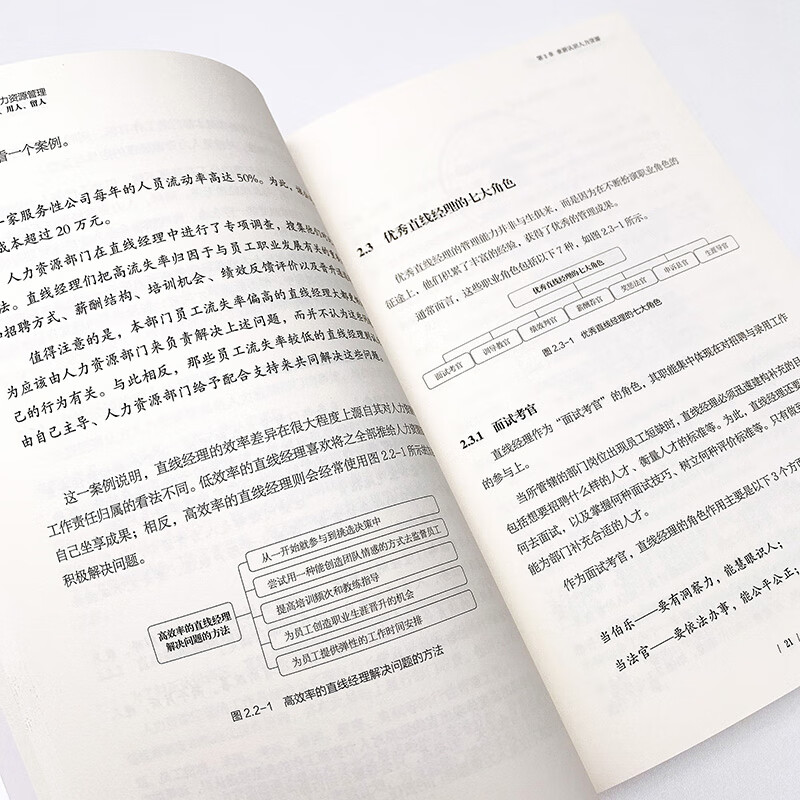 力资源管理
用人、留人
看一个案例。
一家服务性公司每年的人员流动率高达 50%。为此，
成本超过 20 万元。
人力资源部门在直线经理中进行了专项调查，搜集他们
法。直线经理们把高流失率归因于与员工职业发展有关的
招聘方式、薪酬结构、培训机会、绩效反馈评价以及晋升
值得注意的是，本部门员工流失率偏高的直线经理大都
为应该由人力资源部门来负责解决上述问题，而并不认为这些
己的行为有关。与此相反，那些员工流失率较低的直线经理
由自己主导、人力资源部门给予配合支持来共同解决这些问题。
这一案例说明，直线经理的效率差异在很大程度上源自其对人力资源
工作责任归属的看法不同。低效率的直线经理喜欢将之全部推给人力资源
自己坐享成果；相反，高效率的直线经理则会经常使用图 2.2-1 所示
积极解决问题。
高效率的直线经理
解决问题的方法
从一开始就参与到挑选决策中
尝试用一种能创造团队情感的方式去监督员工
提高培训频次和教练指导
为员工创造职业生涯晋升的机会
为员工提供弹性的工作时间安排
图 2.2-1 高效率的直线经理解决问题的方法
第 2 章 重新认识人力资源
2.3 优秀直线经理的七大角色
优秀直线经理的管理能力并非与生俱来，而是因为在不断扮演职业角色的
征途上，他们积累了丰富的经验，获得了优秀的管理成果。
通常而言，这些职业角色包括以下 7 种，如图 2.3-1 所示。
优秀直线经理的七大角色
面试考官 训导教官 绩效判官 薪酬荐官 奖惩法官 申诉法官 生涯导官
图 2.3-1 优秀直线经理的七大角色
2.3.1 面试考官
直线经理作为“面试考官”的角色，其职能集中体现在对招聘与录用工作
的参与上。
当所管辖的部门岗位出现员工短缺时，直线经理必须迅速建构补充的目
包括想要招聘什么样的人才、衡量人才的标准等。为此，直线经理还要
何去面试，以及掌握何种面试技巧、树立何种评价标准等。只有做到
能为部门补充合适的人才。
作为面试考官，直线经理的角色作用主要是以下 3 个方面
当伯乐——要有洞察力，能慧眼识人；
当法官——要依法办事，能公平公正；
| 21 |